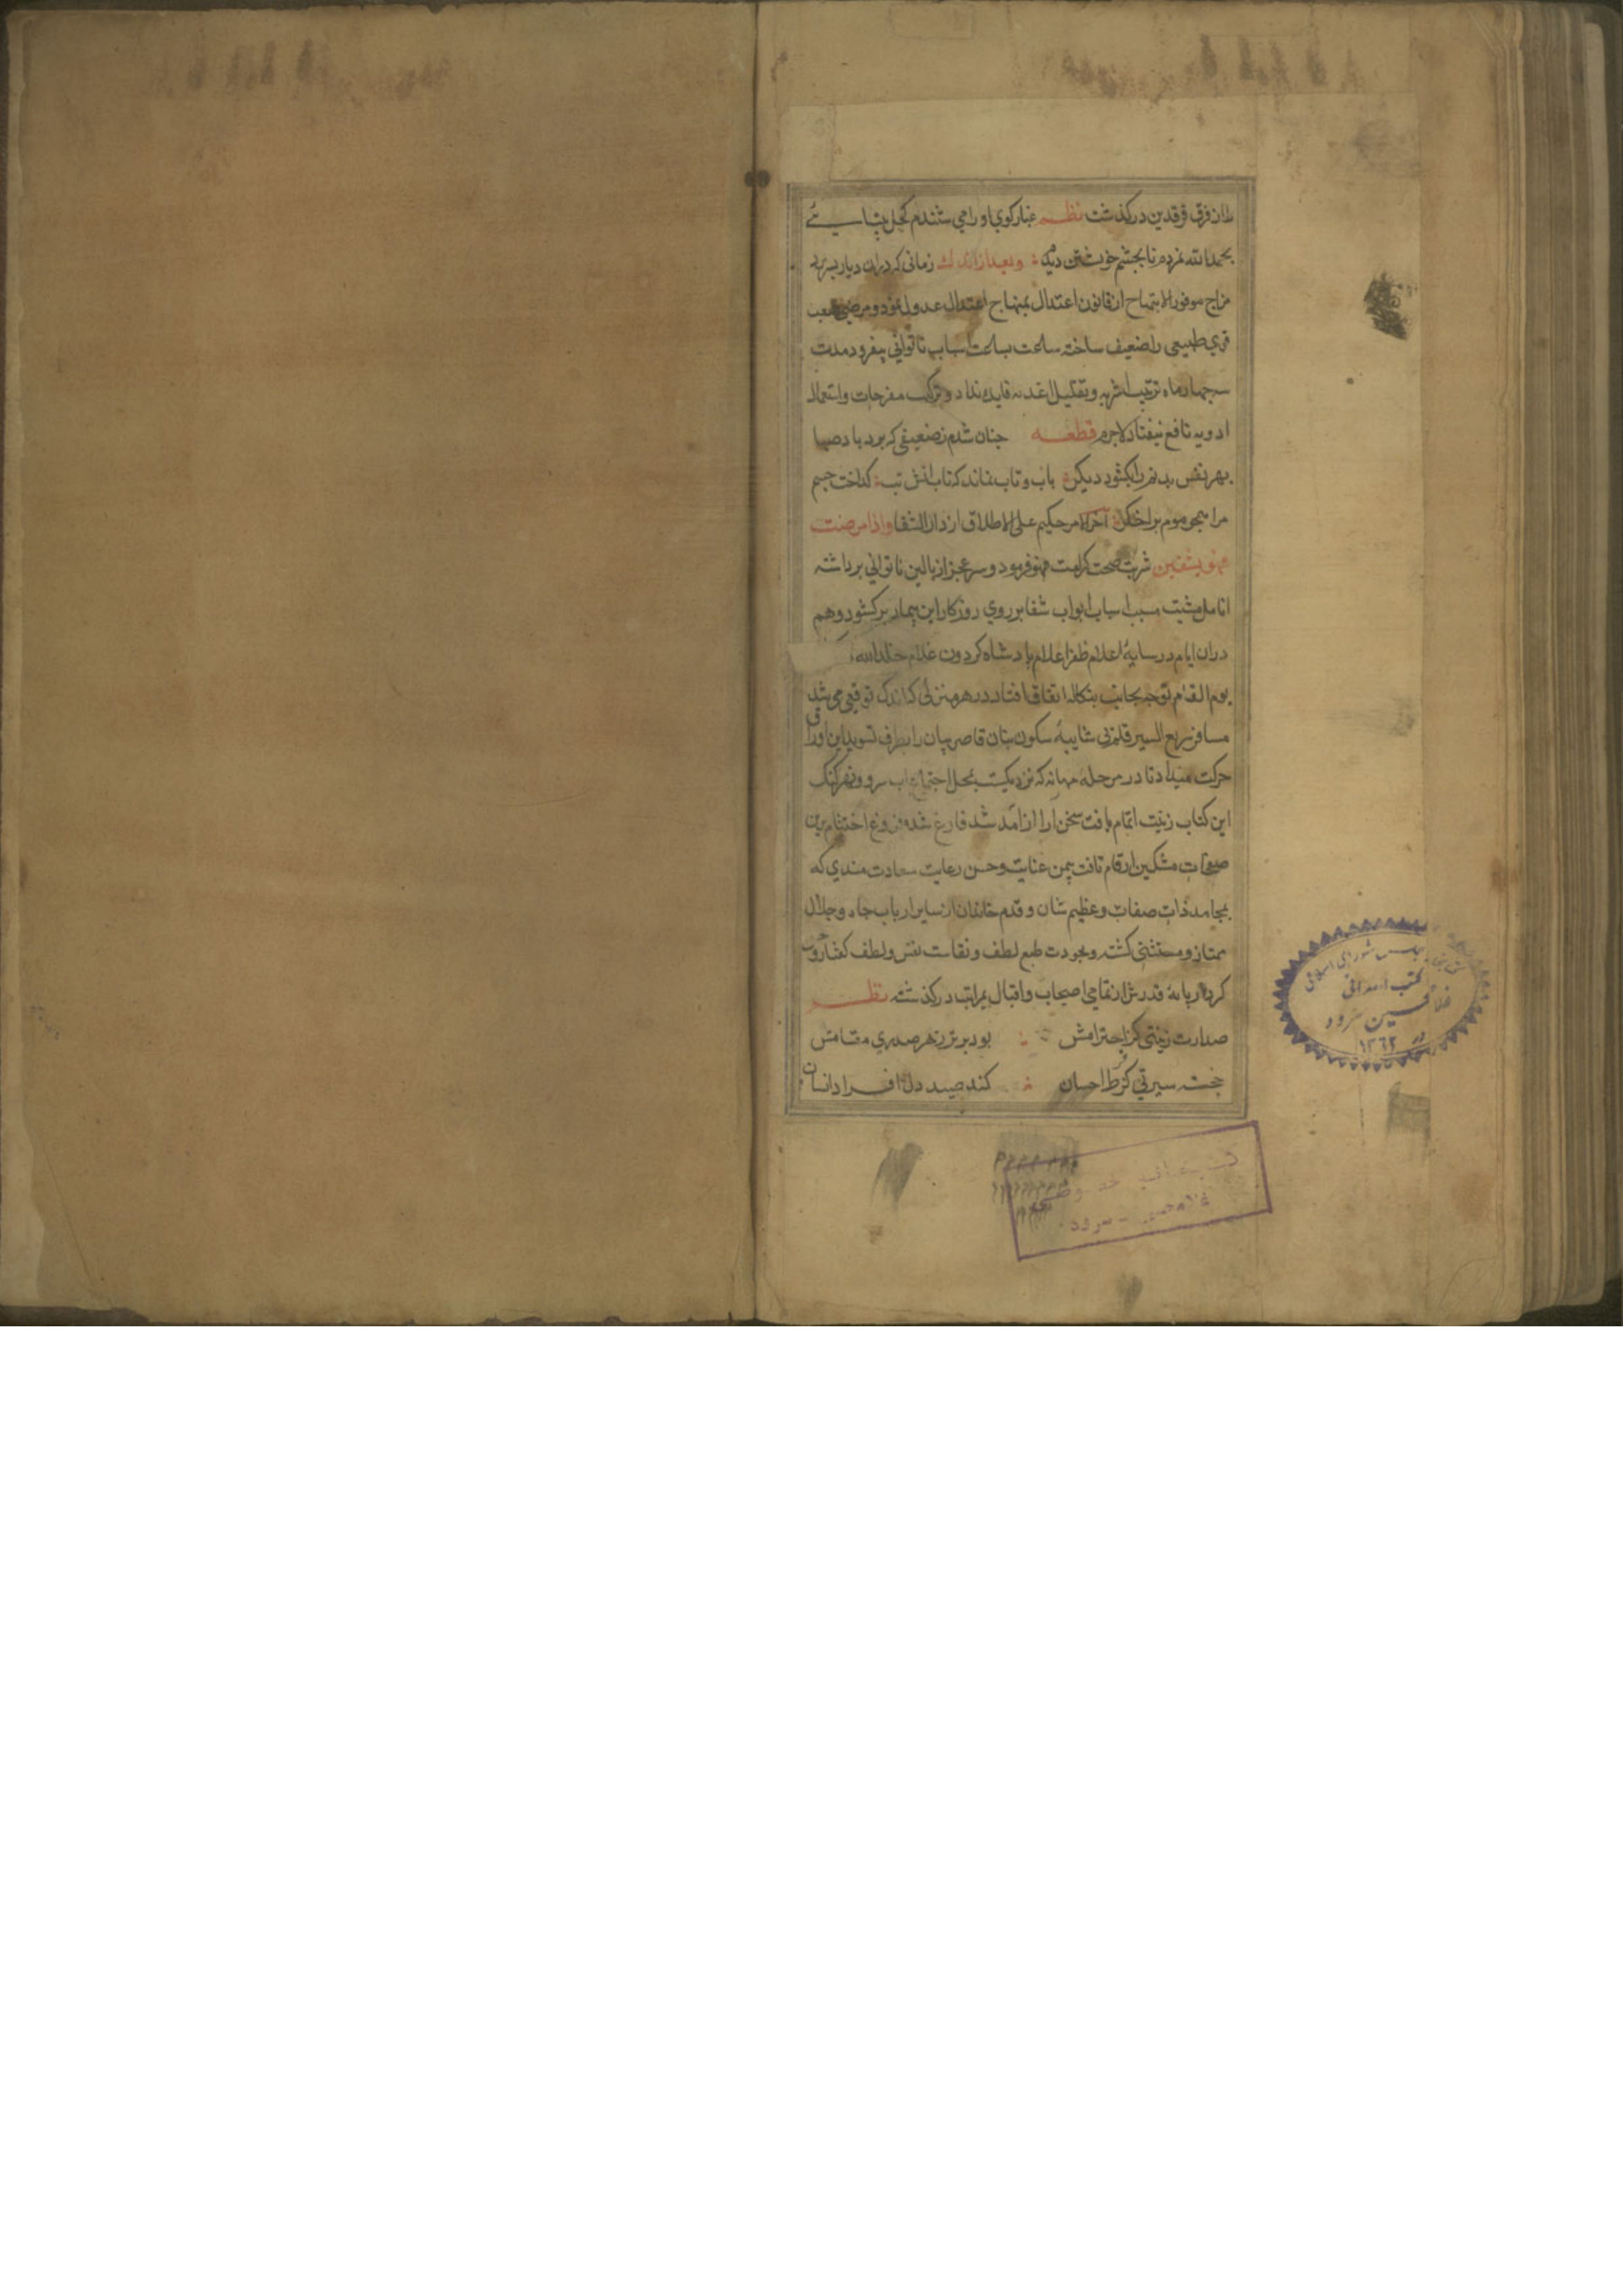 را از فرق فرقدین درکذشت نظم غبار کوی او را می ستندم کحل بینایئ
بحمدالله نمردم تا بجشم خویشتن دیدم وبعد از اندك زمانی که دران دیار بسر برد
مزاج موفور الابتهاج از قانون اعتدال بمنهاج اعتدال عدول نمود و مرضی صعب
قوی طبیعی را ضعیف ساخته ساعت بساعت اسباب ناتوانی بیفزود مدت
سه جهار ماه ترتیب اشربه و تقلیل اغذیه فایده نداد و ترکیب مفرحات و استعمال
ادویه نافع نیفتاد لاجرم قطعه جنان شدم ز ضعیفی که برد باد صبا
بهر نفس بدنم را بکشور دیکر بآب و تاب نماند که تاب آتش تب کداخت جسم
مرا همجو موم بر اخکر آخر الامر حکیم علی الاطلاق از دار الشفا واذا مرضت
فهو یشفین شربت صحت کرامت فرمود و سر عجز از بالین ناتوانی برداشته
انامل مشیت مسبب اسباب ابواب شفا بر روی روزکار این بیمار برکشود و هم
دران ایام در سایهٔ اعلام ظفر اعلام بادشاه کردون غلام خلد الله
یوم القیام توجه بجانب بنکاله اتفاق افتاد در هر منزلی که اندک توقفی می شد
مسافر سریع السیر قلم بی شایبهٔ سکون بنان قاصر بیان را بطرف تسوید این اوراق
حرکت میداد تا در مرحله مهانه که نزدیکست بمحل اجتماع آب سرو و نهر کنک
این کتاب زینت اتمام یافت سخن آرا از آمد شد فارغ شده فروغ اختتام برین
صفحات مشکین ارقام تافت بیمن عنایت و حسن رعایت سعادت مندی که
بمحامد ذات صفات و عظیم شان و قدم خاندان از سایر ارباب جاه و جلال
ممتاز و مستثنی کشته و بجودت طبع لطف و نقاست نفس و لطف کفتار و حسن
کردار پایهٔ قدرش از تمامی اصحاب و اقبال بمراتب درکذشته نظم
صدارت زینتی کز احترامش بود برتر ز هر صدری مقامش
خجسته سیرتی کز فرط احسان کند صید دل افراد انسان
کتابخانه مجلس شورای اسلامی
کتب اهدائی
غلامحسین سرود
۱۳۶۲
کتابخانه خصوصی
غلامحسین سرود